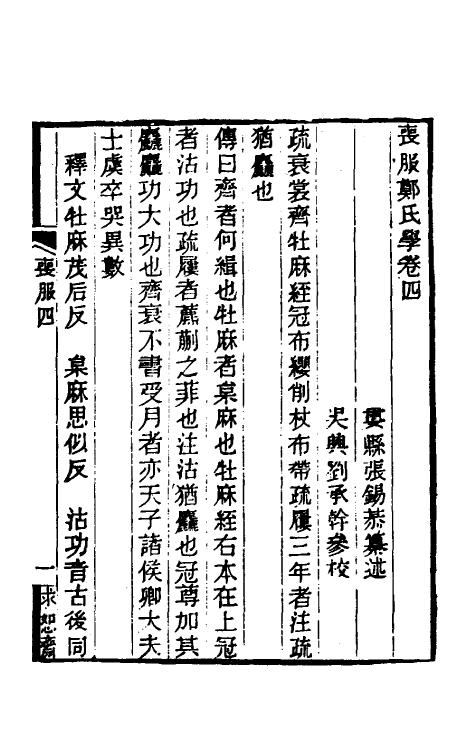 喪服鄭氏學卷四
婁縣張錫恭纂述
吳興劉承幹參校
疏衰裳齊牡麻絰冠布纓削杖布帶疏屨三年者注疏
猶麤也
傳曰齊者何緝也牡麻者枲麻也牡麻絰右本在上冠
者沽功也疏屨者藨蒯之菲也注沽猶麤也冠尊加其
麤麤功大功也齊衰不書受月者亦天子諸侯卿大夫
士虞卒哭異數
釋文牡麻茂后反 枲麻思似反 沽功音古後同
喪服四
一
求恕齋